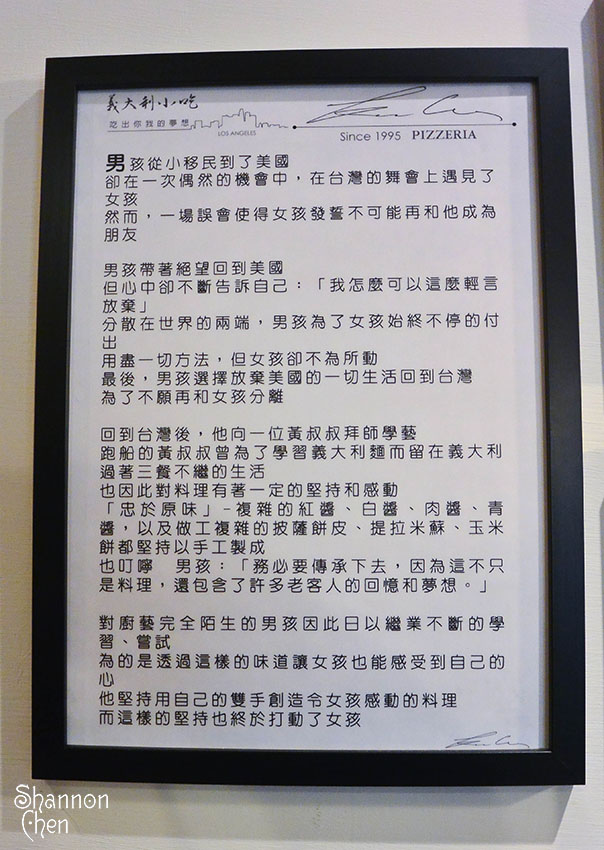 義大利小吃
吃出你我的夢想
LOS ANGELES
Since 1995 PIZZERIA
男孩從小移民到了美國
卻在一次偶然的機會中，在台灣的舞會上遇見了
女孩
然而，一場誤會使得女孩發誓不可能再和他成為
朋友
男孩帶著絕望回到美國
但心中卻不斷告訴自己：「我怎麼可以這麼輕言
放棄」
分散在世界的兩端，男孩為了女孩始終不停的付
出
用盡一切方法，但女孩卻不為所動
最後，男孩選擇放棄美國的一切生活回到台灣
為了不願再和女孩分離
回到台灣後，他向一位黃叔叔拜師學藝
跑船的黃叔叔曾為了學習義大利麵而留在義大利
過著三餐不繼的生活
也因此對料理有著一定的堅持和感動
「忠於原味」-複雜的紅醬、白醬、肉醬、青
醬，以及做工複雜的披薩餅皮、提拉米蘇、玉米
餅都堅持以手工製成
也叮嚀 男孩：「務必要傳承下去，因為這不只
是料理，還包含了許多老客人的回憶和夢想。」
對廚藝完全陌生的男孩因此日以繼業不斷的學
習、嘗試
為的是透過這樣的味道讓女孩也能感受到自己的
心
他堅持用自己的雙手創造令女孩感動的料理
而這樣的堅持也終於打動了女孩
Shannon
Chen